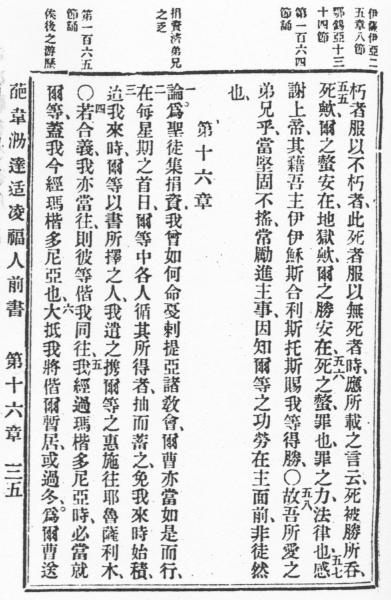 伊薩伊亞二
五章八節
鄂錫亞十三
十四節
第一百六四
節誦
捐資濟弟兄
之乏
第一百六五
節誦
俟後之游歷
朽者服以不朽者、此死者服以無死者時、應所載之言云、死被勝所吞、
五五死歟、爾之螫安在、地獄歟、爾之勝安在、五六死之螫罪也、罪之力法律也、五七感
謝上帝、其藉吾主伊伊穌斯合利斯托斯賜我等得勝、〇五八故吾所愛之
弟兄乎、當堅固不搖、常勵進主事、因知爾等之功勞在主面前、非徒然
也、
第十六章
一論爲聖徒集捐資、我曾如何命戞剌提亞諸敎會、爾曹亦當如是而行、
二在每星期之首日、爾等中各人循其所得者、抽而蓄之、免我來時始積、
三迨我來時、爾等以書所擇之人、我遣之携爾等之惠施往耶魯薩利木、
〇四若合義我亦當往、則彼等偕我同往、五我經過瑪楷多尼亞時、必當就
爾等、蓋我今經瑪楷多尼亞也、六大抵我將偕爾暫居、或過冬、爲爾曹送
葩韋泐達适凌福人前書 第十六章 三五